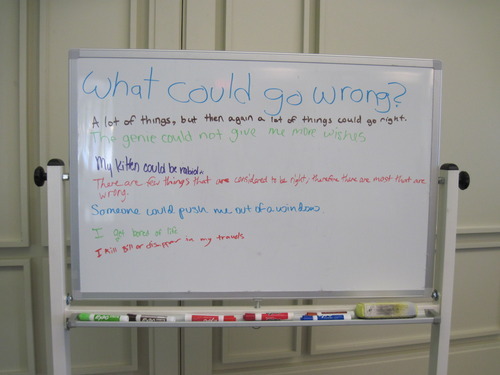 What could go wrong?
A lot of things, but then again a lot of things could go right.
The genie could not give me more wishes
My kitten could be rabid.
There are few things that are considered to be right, therefore there are most that are
wrong.
Someone could push me out of a window.
I get bored of life
I kill Bill or disappear in my travels